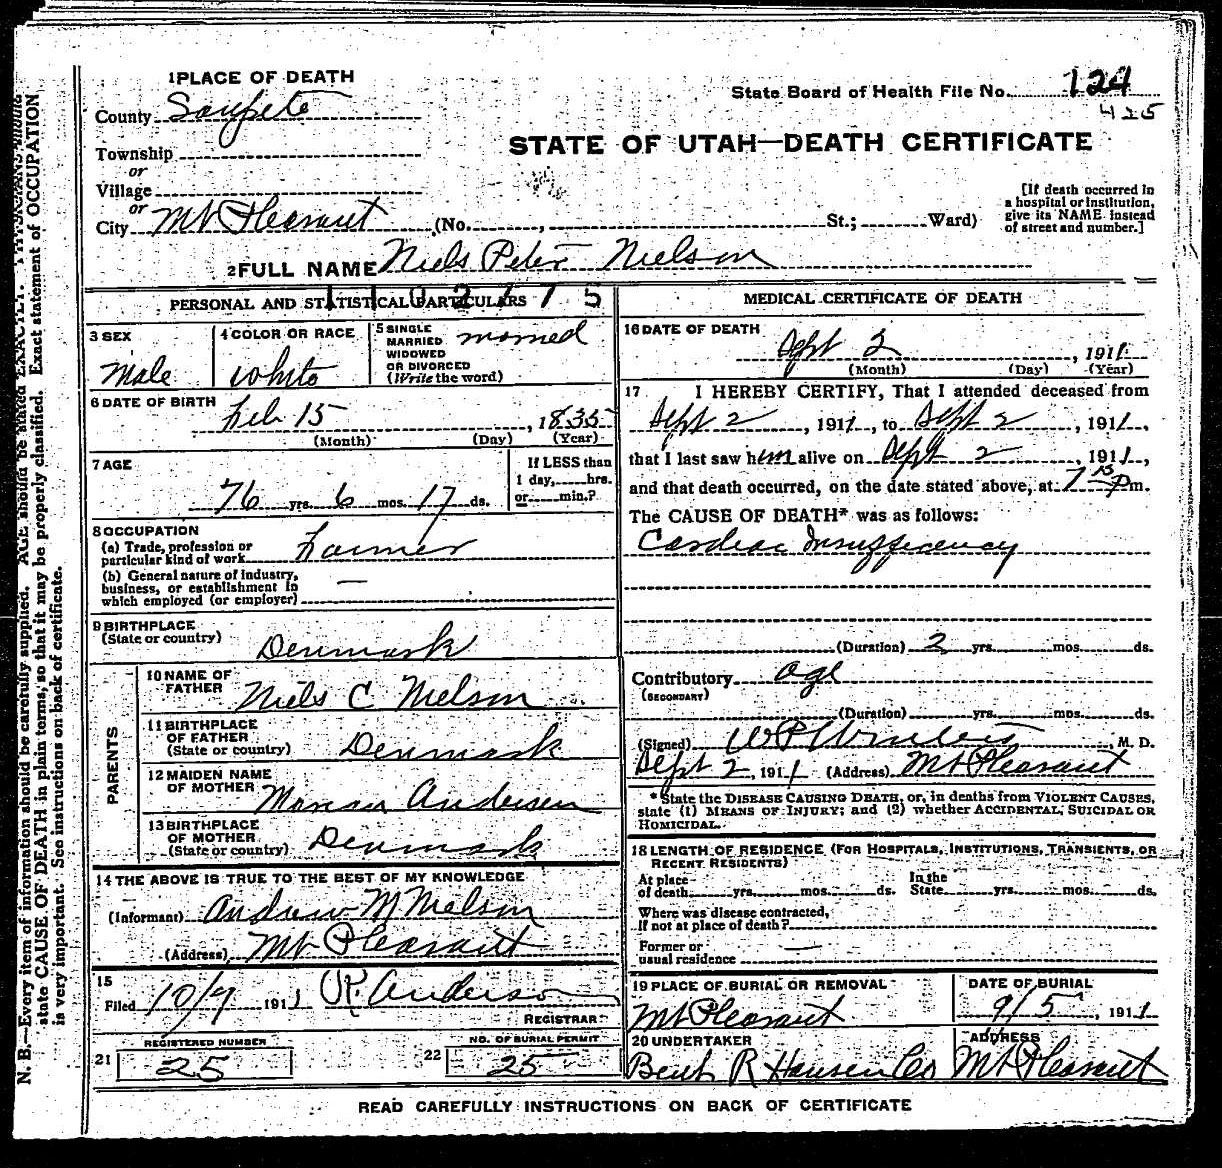 1 PLACE OF DEATH
County Sanpete
State Board of Health File No. 124
425
Township
or
Village
or
City Mt Pleasant (No. , St.; Ward)
STATE OF UTAH—DEATH CERTIFICATE
[If death occurred in
a hospital or institution,
give its NAME instead
of street and number.]
2 FULL NAME Niels Peter Nielson
PERSONAL AND STATISTICAL PARTICULARS
3 SEX
Male
4 COLOR OR RACE
White
5 SINGLE
MARRIED
WIDOWED
OR DIVORCED
(Write the word)
married
6 DATE OF BIRTH
Feb 15 , 1835
(Month) (Day) (Year)
7 AGE
76 yrs. 6 mos. 17 ds.
If LESS than
1 day, hrs.
or min.?
8 OCCUPATION
(a) Trade, profession or
particular kind of work Farmer
(b) General nature of industry,
business, or establishment in
which employed (or employer) —
9 BIRTHPLACE
(State or country) Denmark
PARENTS
10 NAME OF
FATHER Niels C Nielson
11 BIRTHPLACE
OF FATHER
(State or country) Denmark
12 MAIDEN NAME
OF MOTHER Andersen
13 BIRTHPLACE
OF MOTHER
(State or country) Denmark
14 THE ABOVE IS TRUE TO THE BEST OF MY KNOWLEDGE
(Informant) Andrew M Nielson
(Address) Mt Pleasant
15
Filed 10/9 1911 Anderson
REGISTRAR
21 REGISTERED NUMBER
25
22 NO. OF BURIAL PERMIT
25
MEDICAL CERTIFICATE OF DEATH
16 DATE OF DEATH
Sept 2 , 1911
(Month) (Day) (Year)
17 I HEREBY CERTIFY, That I attended deceased from
Sept 2 , 1911, to Sept 2 , 1911,
that I last saw him alive on Sept 2 , 1911,
and that death occurred, on the date stated above, at 7 15 Pm.
The CAUSE OF DEATH* was as follows:
Cardiac Insufficiency
(Duration) 2 yrs. mos. ds.
Contributory age
(SECONDARY)
(Duration) yrs. mos. ds.
(Signed) , M. D.
Sept 2, 1911 (Address) Mt Pleasant
*State the DISEASE CAUSING DEATH, or, in deaths from VIOLENT CAUSES,
state (1) MEANS OF INJURY; and (2) whether ACCIDENTAL, SUICIDAL OR
HOMICIDAL.
18 LENGTH OF RESIDENCE (FOR HOSPITALS, INSTITUTIONS, TRANSIENTS, OR
RECENT RESIDENTS)
At place
of death yrs. mos. ds. In the
State yrs. mos. ds.
Where was disease contracted,
If not at place of death?
Former or
usual residence —
19 PLACE OF BURIAL OR REMOVAL
Mt Pleasant
DATE OF BURIAL
9/5 , 1911
20 UNDERTAKER
Bent R Hansen Co
ADDRESS
Mt Pleasant
READ CAREFULLY INSTRUCTIONS ON BACK OF CERTIFICATE
N. B.—Every item of information should be carefully supplied. AGE should be stated EXACTLY. PHYSICIANS should
state CAUSE OF DEATH in plain terms, so that it may be properly classified. Exact statement of OCCUPATION
is very important. See instructions on back of certificate.